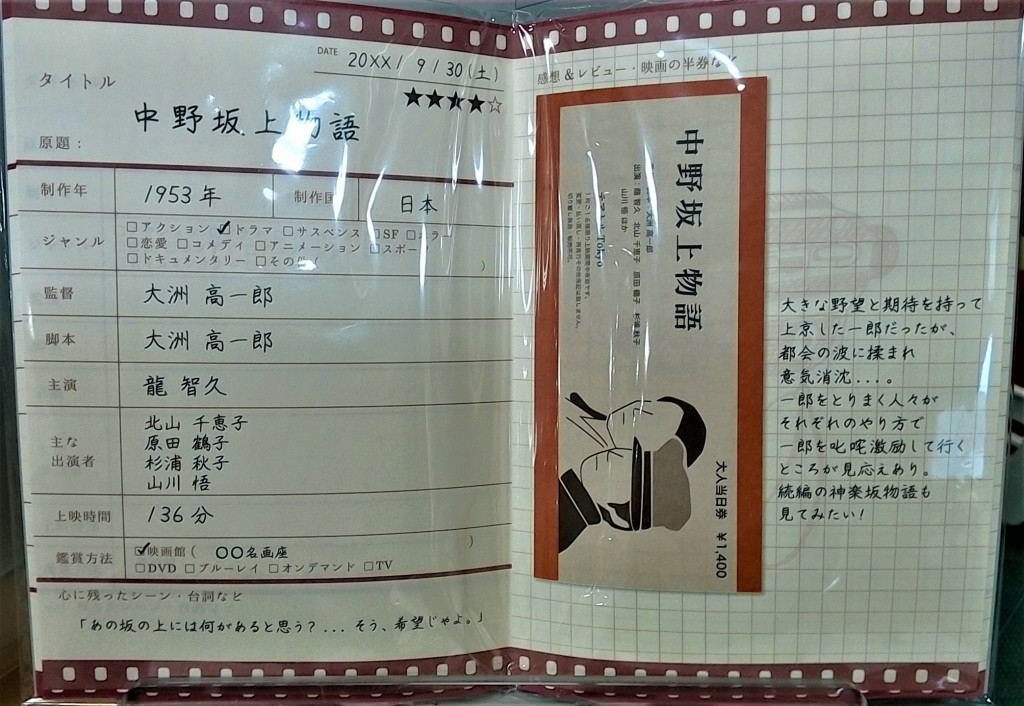 DATE 20XX / 9 / 30 (土)
タイトル
★★★★☆
中野坂上物語
原題:
制作年 1953年 制作国 日本
ジャンル □アクション ☑ドラマ □サスペンス □SF □ホラー
□恋愛 □コメディ □アニメーション □スポーツ
□ドキュメンタリー □その他( )
監督 大洲 高一郎
脚本 大洲 高一郎
主演 龍 智久
主な出演者 北山 千恵子
原田 鶴子
杉浦 秋子
山川 悟
上映時間 136分
鑑賞方法 ☑映画館( 〇〇名画座 )
□DVD □ブルーレイ □オンデマンド □TV
心に残ったシーン・台詞など
「あの坂の上には何があると思う?...そう、希望じゃよ。」
感想&レビュー・映画の半券など
中野坂上物語
大洲 高一郎
出演:龍 智久 北山 千恵子 原田 鶴子 杉浦 秋子
山川 悟 ほか
Tokyo
大人当日券 ¥1,400
大きな野望と期待を持って
上京した一郎だったが、
都会の波に揉まれ
意気消沈...。
一郎をとりまく人々が
それぞれのやり方で
一郎を叱咤激励して行く
ところが見応えあり。
続編の神楽坂物語も
見てみたい!